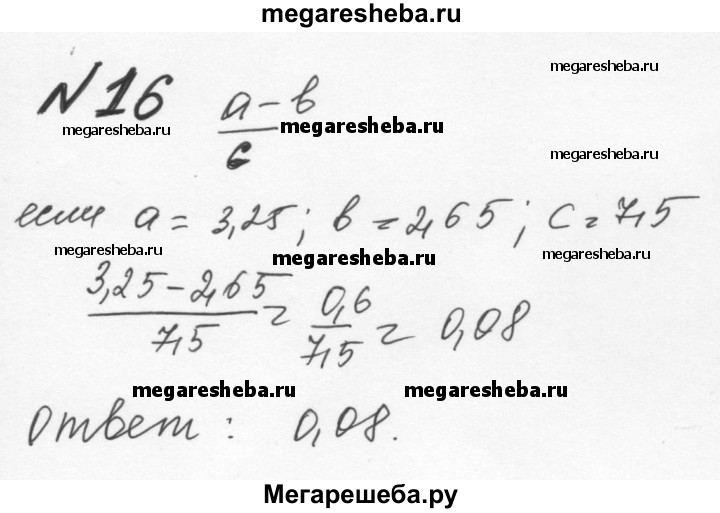 megaresheba.ru
megaresheba.ru
N 16
megaresheba.ru
a - в
megaresheba.ru
c
megaresheba.ru
если a = 3,25; в = 2,65; c = 7,5
megaresheba.ru
megaresheba.ru
megaresheba.ru
3,25 - 2,65 / 7,5 = 0,6 / 7,5 = 0,08
megaresheba.ru
megaresheba.ru
Ответ: 0,08.
Мегарешеба.ру